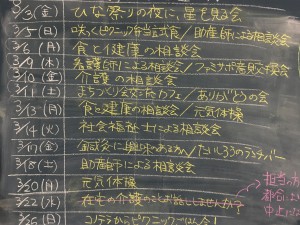 3/3(金) ひな祭りの夜に、星を見る会
3/5(日) 咲くピクニック弁当試食/助産師による相談会
3/6(月) 食と健康の相談会
3/9(木) 看護師による相談会/ファミサポ意見交換会
3/10(金) 介護の相談会
3/11(土) まちづくり交流カフェ/ありがとうの会
3/13(月) 食と健康の相談会/元気体操
3/14(火) 社会福祉士による相談会
3/17(金) 鍼灸に興味あるかい/たいしろうのランチバー
3/18(土) 助産師による相談会
3/20(月) 元気体操
3/22(水) 在宅の介護のことお話ししませんか?
3/26(日) からピクニックごはん会!
担当の
都合により
中止に